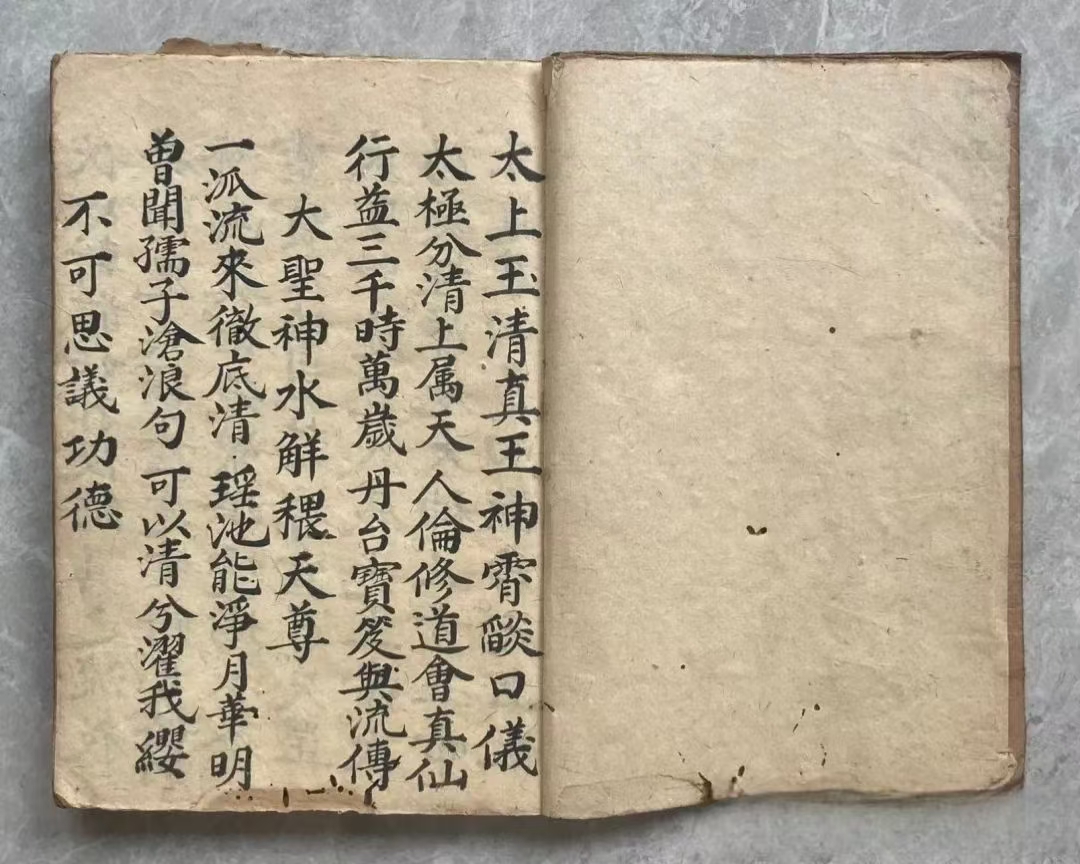 太上玉清真王神霄燄口儀
太極分清上属天 人倫修道會真仙
行益三千時萬歲 丹台寶笈與流傳
大聖神水解穢天尊
一派流來徹底清 瑶池能淨月華明
曾聞孺子滄浪句 可以清兮濯我纓
不可思議功德